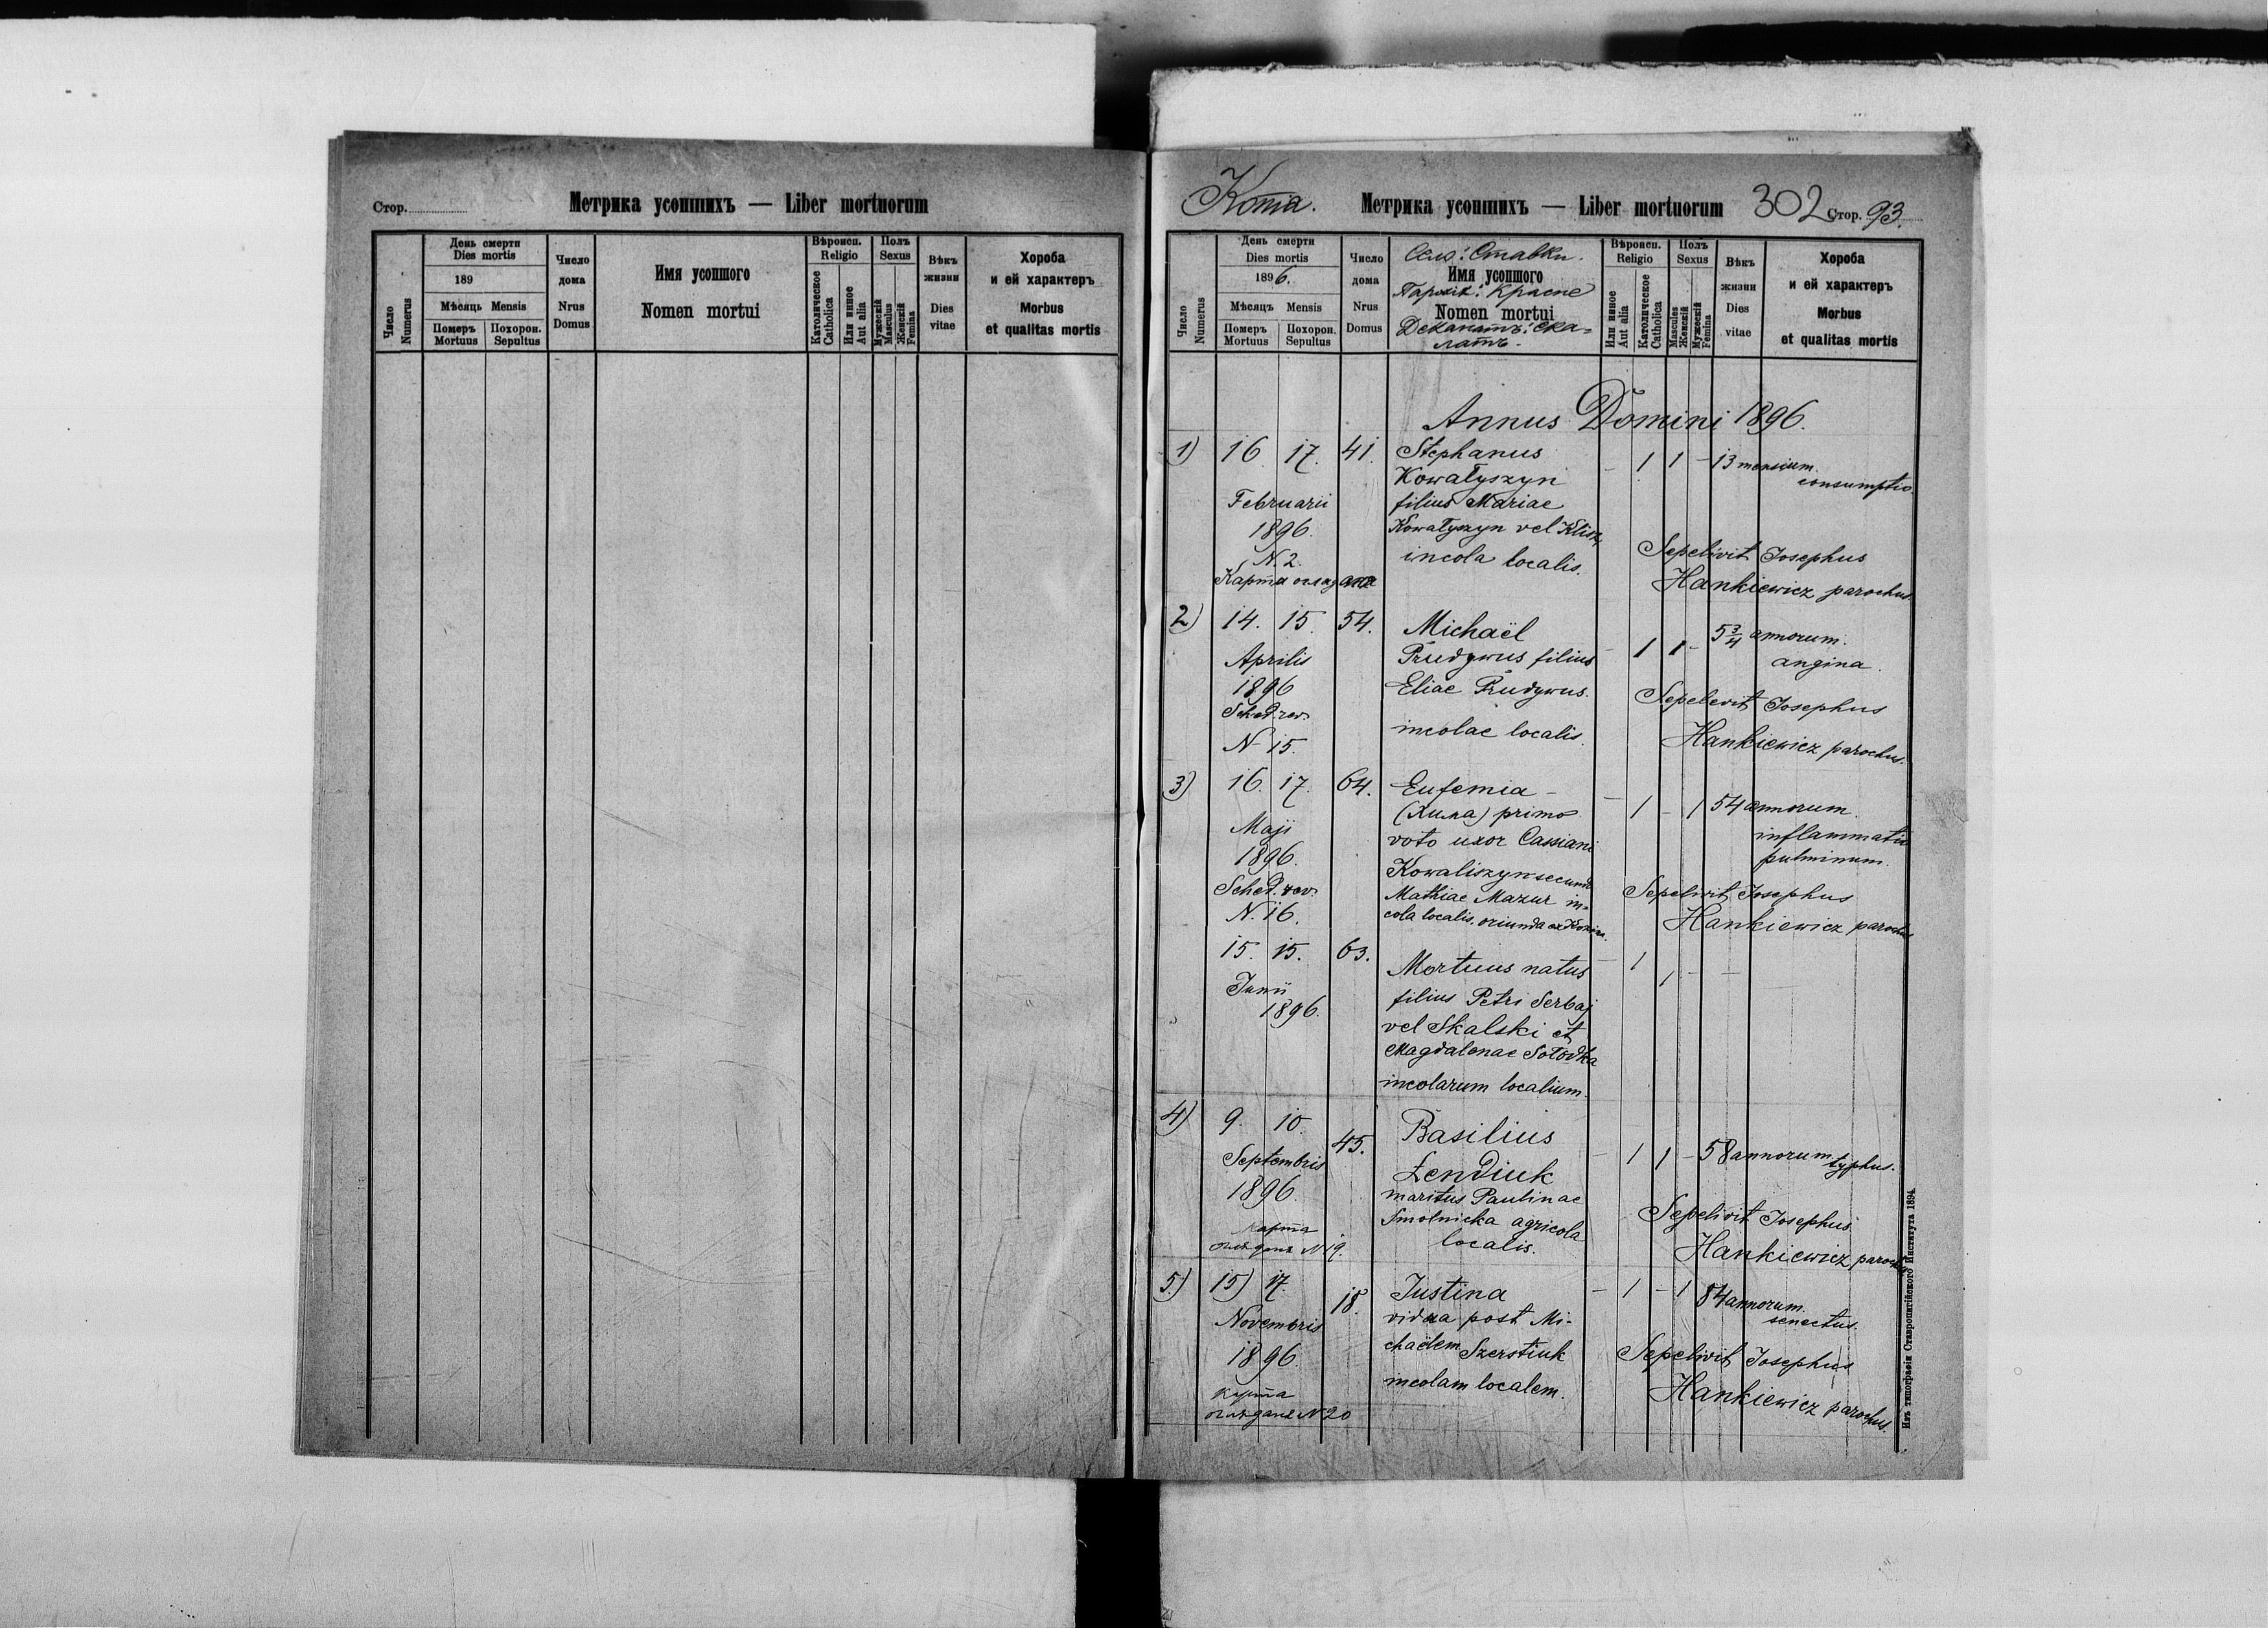 Стор.
Метрика усопшихъ — Liber mortuorum
Число
Numerus
День смерти
Dies mortis
189
Мѣсяць Mensis
Померъ
Mortuus
Похорон.
Sepultus
Число
дома
Nrus
Domus
Имя усопшого
Nomen mortui
Вѣроисп.
Religio
Католическое
Catholica
Или инное
Aut alia
Полъ
Sexus
Мужескій
Masculus
Женскій
Femina
Вѣкъ
жизни
Dies
vitae
Хороба
и ей характеръ
Morbus
et qualitas mortis
Копія.
Метрика усопшихъ — Liber mortuorum
302
Стор. 93.
Число
Numerus
День смерти
Dies mortis
1896.
Мѣсяць Mensis
Померъ
Mortuus
Похорон.
Sepultus
Число
дома
Nrus
Domus
Село: Ставки.
Имя усопшого
Парохія: Красне
Nomen mortui
Деканатъ: Ска=
латъ.
Вѣроисп.
Religio
Или инное
Aut alia
Католическое
Catholica
Полъ
Sexus
Mascules
Женскій
Мужескій
Femina
Вѣкъ
жизни
Dies
vitae
Хороба
и ей характеръ
Morbus
et qualitas mortis
Annus Domini 1896.
1) 16. 17. 41. Stephanus - 1 1 - 13 mensium.
Kowałyszyn consumptio.
Februarii filius Mariae
1896. Kowałyszyn vel Klisz,
N. 2. incola localis. Sepelivit Josephus
Карта Hankiewicz parochus.
2) 14. 15. 54. Michaël 5 3/4 annorum.
Aprilis Prudywus filius - 1 1 - angina.
1896 Eliae Prudywus. Sepelevit Josephus
Sched. rev.
N 15. incolae localis. Hankiewicz parochus.
3) 16. 17. 64. Eufemia - - 1 - 1 54 annorum.
(Хима) primo inflammatio
Maji voto uxor Cassiani pulminum.
1896. Kowaliszyn secundo
Sched. rev. Mathiae Mazur in= Sepelivit Josephus
N. 16. cola localis. oriunda ex Hankiewicz parochus
15. 15. 63. Mortuus natus - 1 1 - -
Junii filius Petri Serbaj
1896. vel Skalski et
Magdalenae Sołodka
incolarum localium.
4) 9. 10. 45. Basilius - 1 1 - 58 annorum typhus.
Septembris Łendiuk
1896. maritus Paulinae
Smolnicka agricola Sepelivit Josephus
карта localis. Hankiewicz parochus
N 19.
5.) 15) 17. 18. Justina - 1 - 1 84 annorum.
Novembris vidua post Mi- senectus.
1896. chaëlem Szerstiuk Sepelivit Josephus
карта incolam localem. Hankiewicz parochus.
N 20
Изъ типографіи Ставропигійского Института 1894.